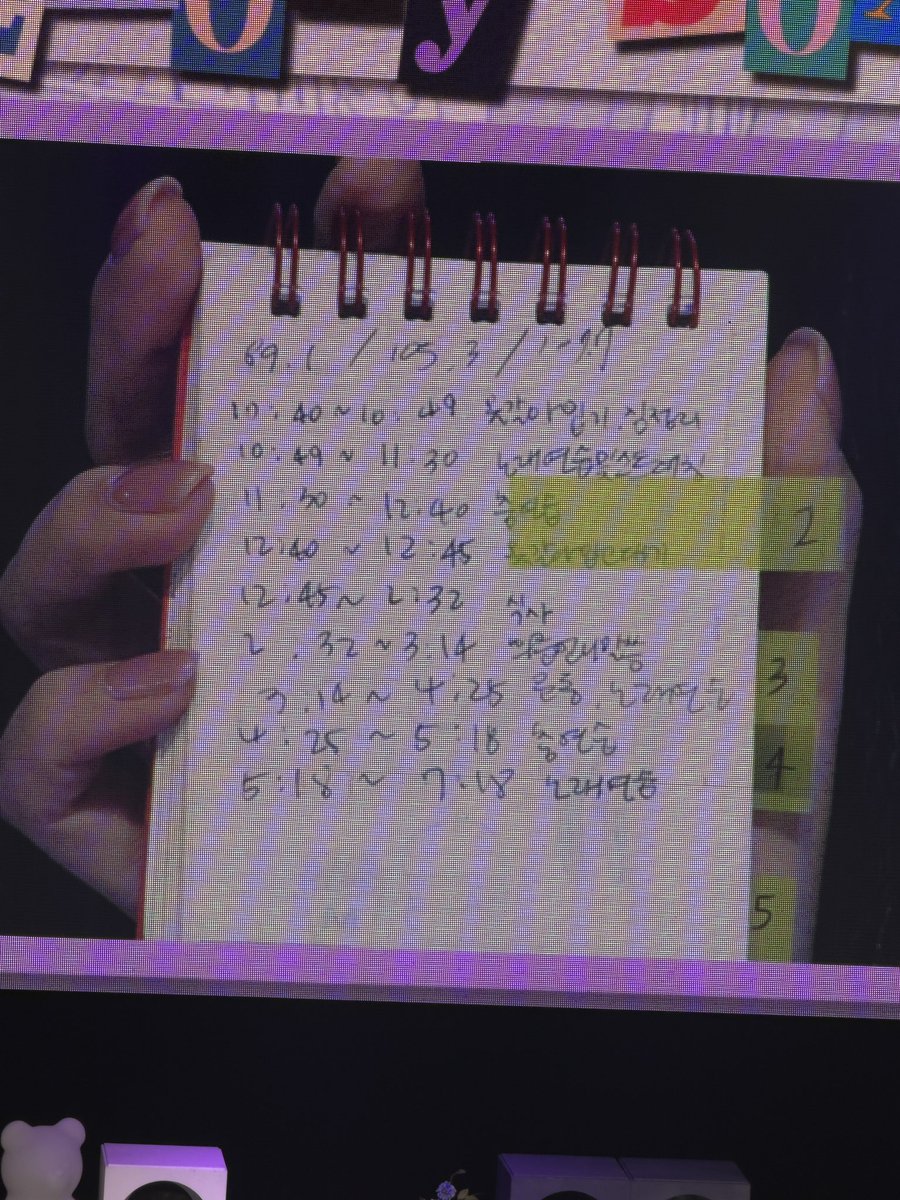 o y o
69.1 / 105.3 /
10:40 ~ 10:49 옷갈아입기, 짐정리
10:49 ~ 11:30 노래연습및스트레칭
11:30 ~ 12:40 춤연습
2
12:40 ~ 12:45 옷갈아입고
12:45 ~ 2:32 식사
2:32 ~ 3:14
3:14 ~ 4:25 노래연습
3
4:25 ~ 5:18 춤연습
4
5:18 ~ 7:18 노래연습
5